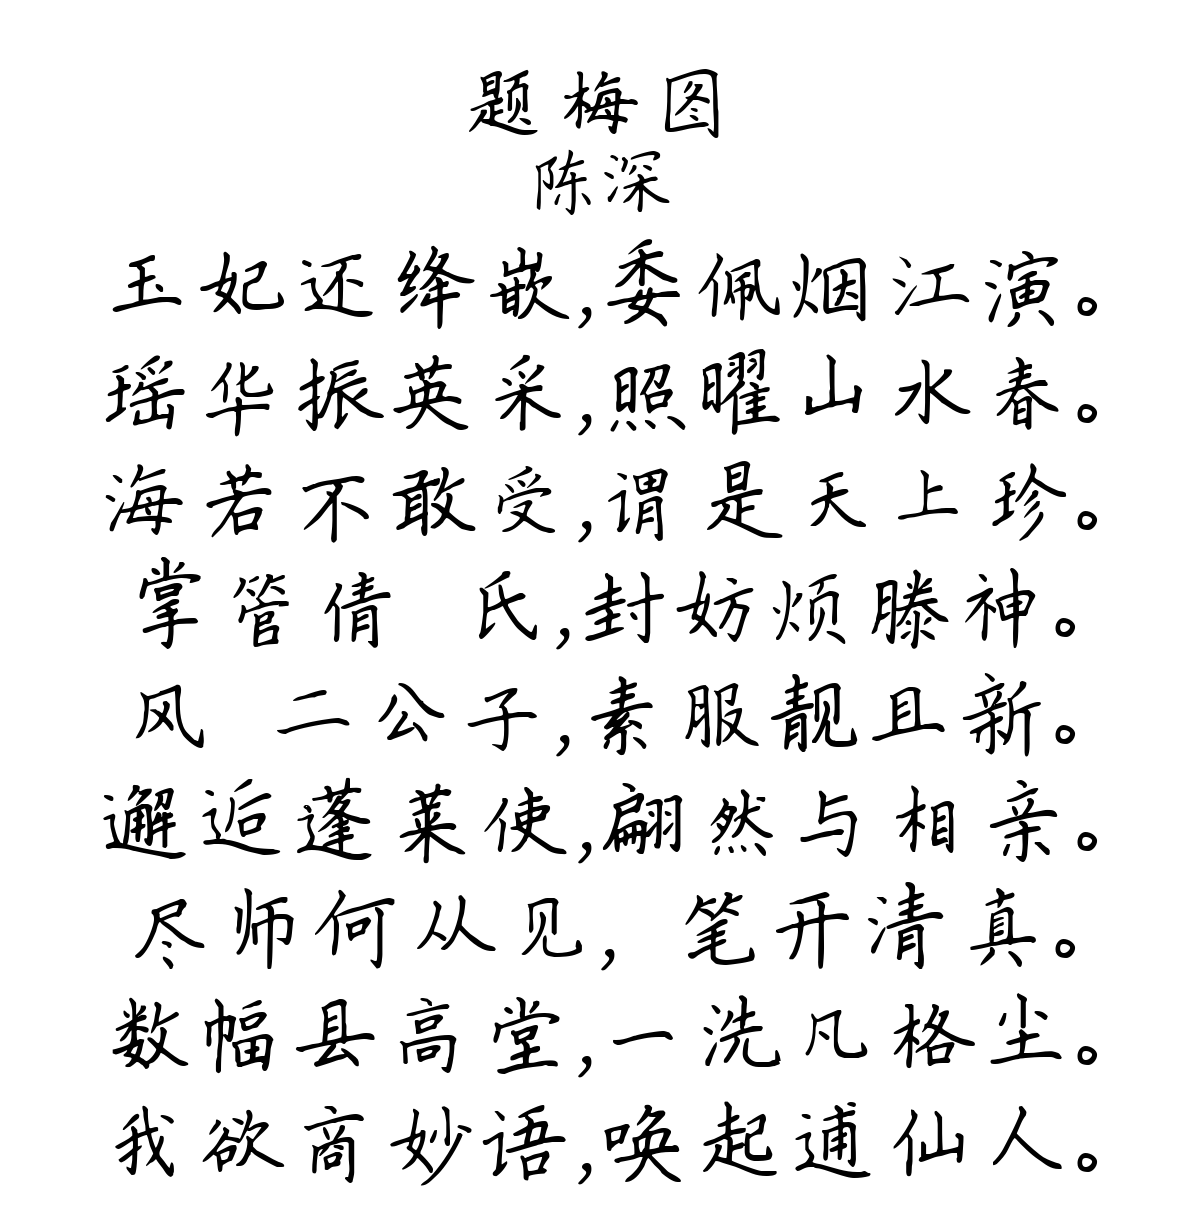 题梅图
陈深
玉妃还绛嵌,委佩烟江演。
瑶华振英采,照曜山水春。
海若不敢受,谓是天上珍。
掌管倩 氏,封妨烦滕神。
风 二公子,素服靓且新。
邂逅蓬莱使,翩然与相亲。
尽师何从见, 笔开清真。
数幅县高堂,一洗凡格尘。
我欲商妙语,唤起逋仙人。